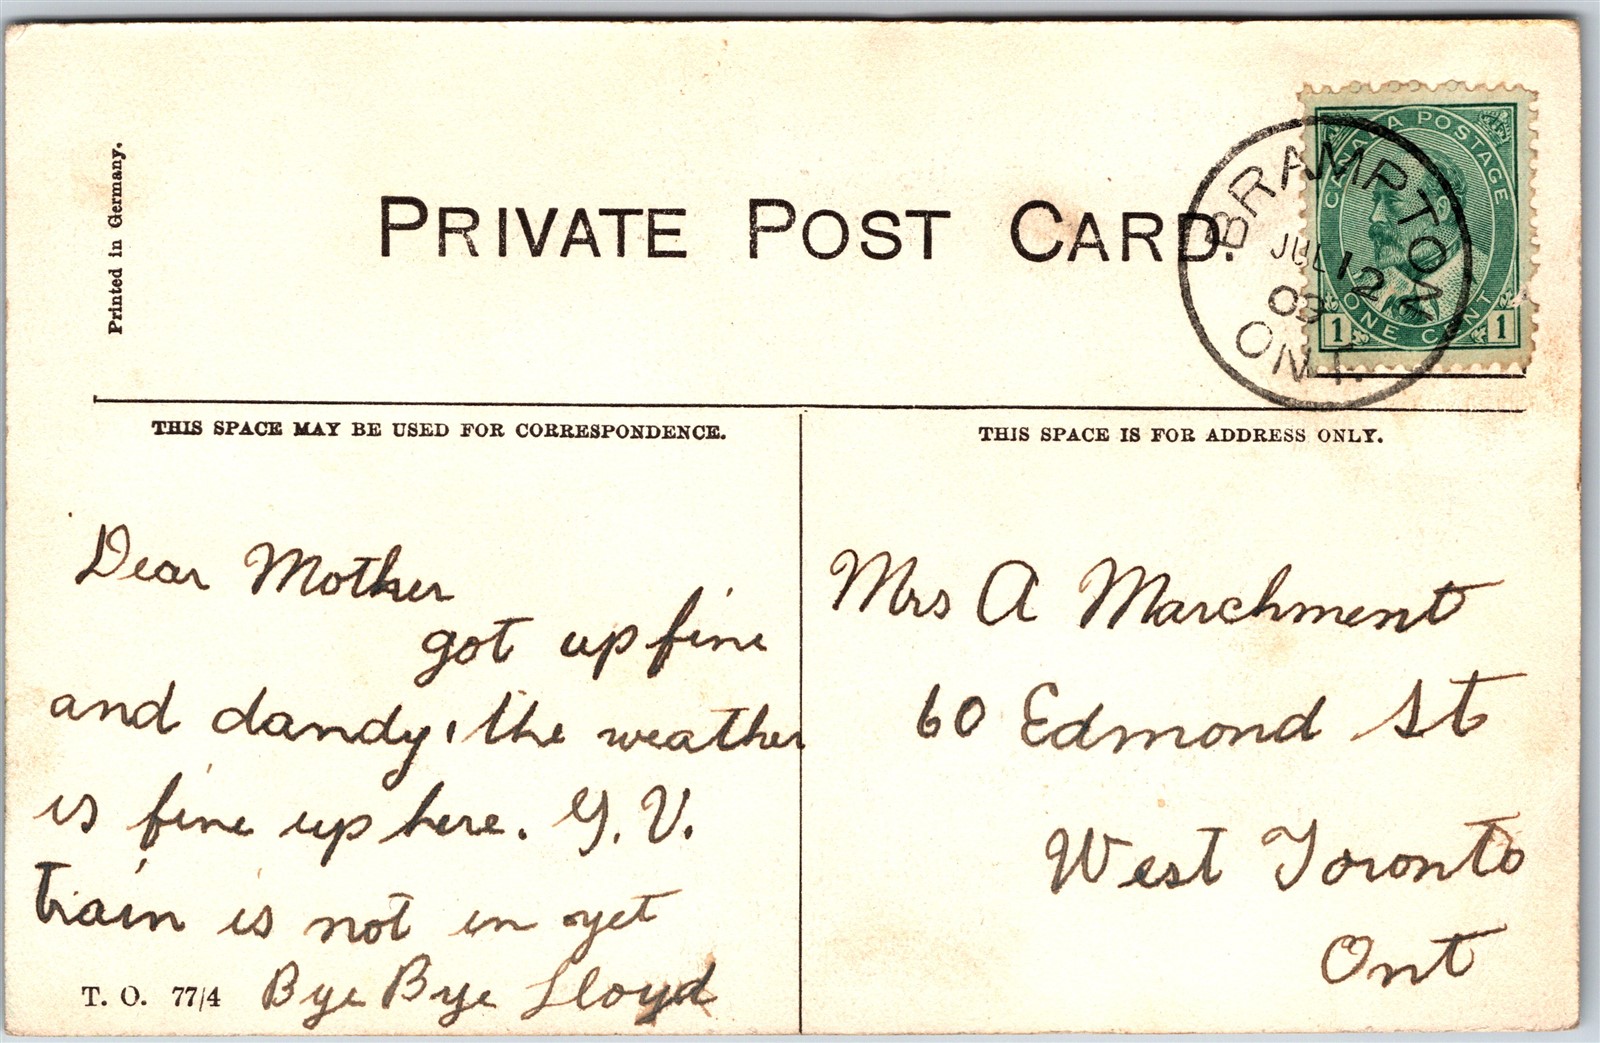 Printed in Germany.
PRIVATE POST CARD.
CANADA POSTAGE
ONE CENT
1 1
BRAMPTON
JUL 12
09
ONT.
THIS SPACE MAY BE USED FOR CORRESPONDENCE.
Dear Mother
got up fine
and dandy, the weather
is fine up here. G. V.
train is not in yet
Bye Bye Lloyd
T. O. 77/4
THIS SPACE IS FOR ADDRESS ONLY.
Mrs A Marchment
60 Edmond St
West Toronto
Ont